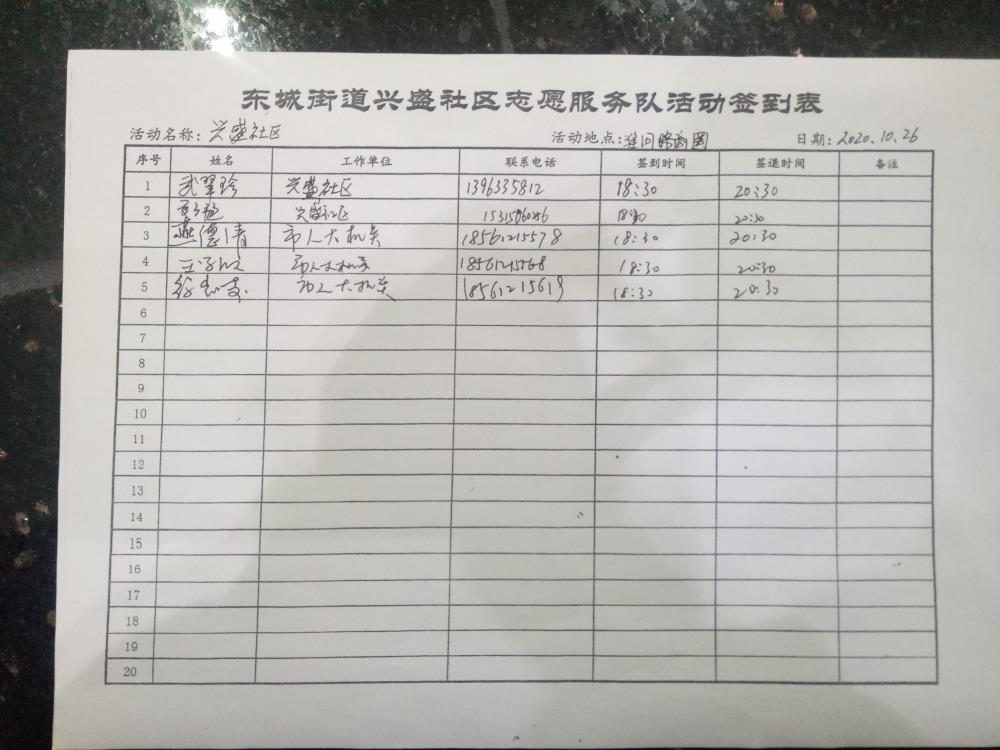 东城街道兴盛社区志愿服务队活动签到表
活动名称：兴盛社区 活动地点： 日期：2020.10.26
序号 姓名 工作单位 联系电话 签到时间 签退时间 备注
1 武翠珍 兴盛社区 1396335812 18:30 20:30
2 兴盛社区 18:30 20:30
3 燕德清 市人大机关 18561215578 18:30 20:30
4 市人大机关 18561215568 18:30 20:30
5 市人大机关 18561215619 18:30 20:30
6
7
8
9
10
11
12
13
14
15
16
17
18
19
20